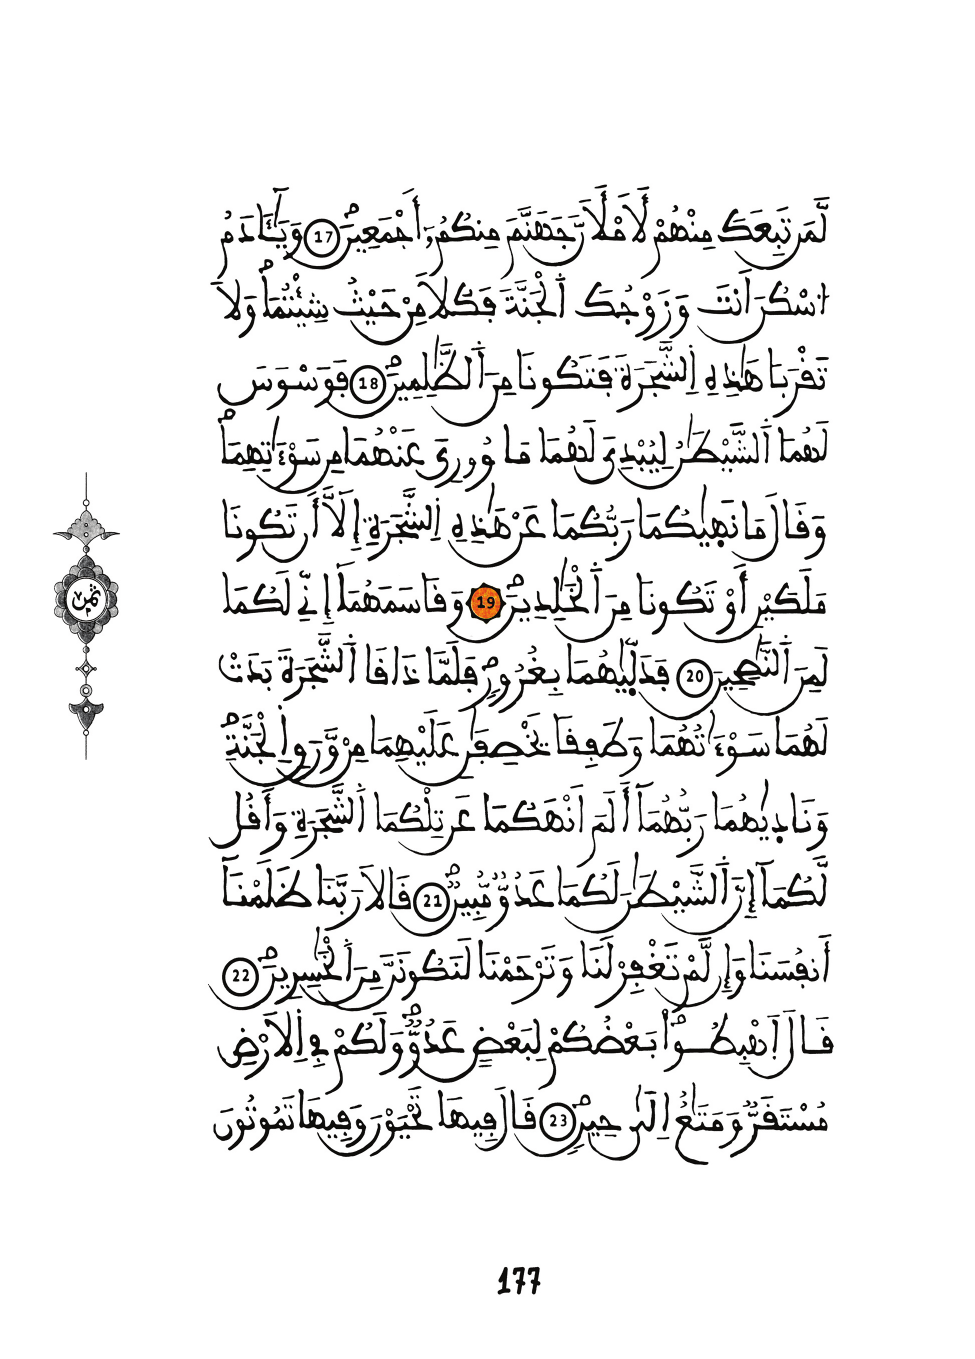 لَّمَن تَبِعَكَ مِنْهُمْ لَأَمْلَأَنَّ جَهَنَّمَ مِنكُمُۥٓ أَجْمَعِينَۖ 17 وَيَـَٰٓـَٔادَمُ
اُ۟سْكُنَ اَنتَ وَزَوْجُكَ اَ۬لْجَنَّةَ فَكُلَا مِنْ حَيْثُ شِئْتُمَاۖ وَلَا
تَقْرَبَا هَٰذِهِ اِ۬لشَّجَرَةَ فَتَكُونَا مِنَ اَ۬لظَّٰلِمِينَۖ 18 فَوَسْوَسَ
لَهُمَا اَ۬لشَّيْطَٰنُ لِيُبْدِيَ لَهُمَا مَا وُۥرِيَ عَنْهُمَا مِن سَوْءَٰتِهِمَاۖ
وَقَالَ مَا نَهَيٰكُمَا رَبُّكُمَا عَنْ هَٰذِهِ اِ۬لشَّجَرَةِ إِلَّآ أَن تَكُونَا
مَلَكَيْنِ أَوْ تَكُونَا مِنَ اَ۬لْخَٰلِدِينَۖ 19 وَقَاسَمَهُمَآ إِنِّے لَكُمَا
لَمِنَ اَ۬لنَّٰصِحِينَ 20 فَدَلَّيٰهُمَا بِغُرُورٖۖ فَلَمَّا ذَاقَا اَ۬لشَّجَرَةَ بَدَتْ
لَهُمَا سَوْءَٰتُهُمَا وَطَفِقَا يَخْصِفَٰنِ عَلَيْهِمَا مِنْ وَّرَقِ اِ۬لْجَنَّةِۖ
وَنَادٜيٰهُمَا رَبُّهُمَآ أَلَمَ اَنْهَكُمَا عَن تِلْكُمَا اَ۬لشَّجَرَةِ وَأَقُل
لَّكُمَآ إِنَّ اَ۬لشَّيْطَٰنَ لَكُمَا عَدُوّٞ مُّبِينٞۖ 21 قَالَا رَبَّنَا ظَلَمْنَآ
أَنفُسَنَا وَإِن لَّمْ تَغْفِرْ لَنَا وَتَرْحَمْنَا لَنَكُونَنَّ مِنَ اَ۬لْخَٰسِرِينَۖ 22
قَالَ اَ۪هْبِطُواْۖ بَعْضُكُمْ لِبَعْضٍ عَدُوّٞۖ وَلَكُمْ فِي اِ۬لَارْضِ
مُسْتَقَرّٞ وَمَتَٰعٌ اِلَيٰ حِينٖۖ 23 قَالَ فِيهَا تَحْيَوْنَ وَفِيهَا تَمُوتُونَ
ثمن
177